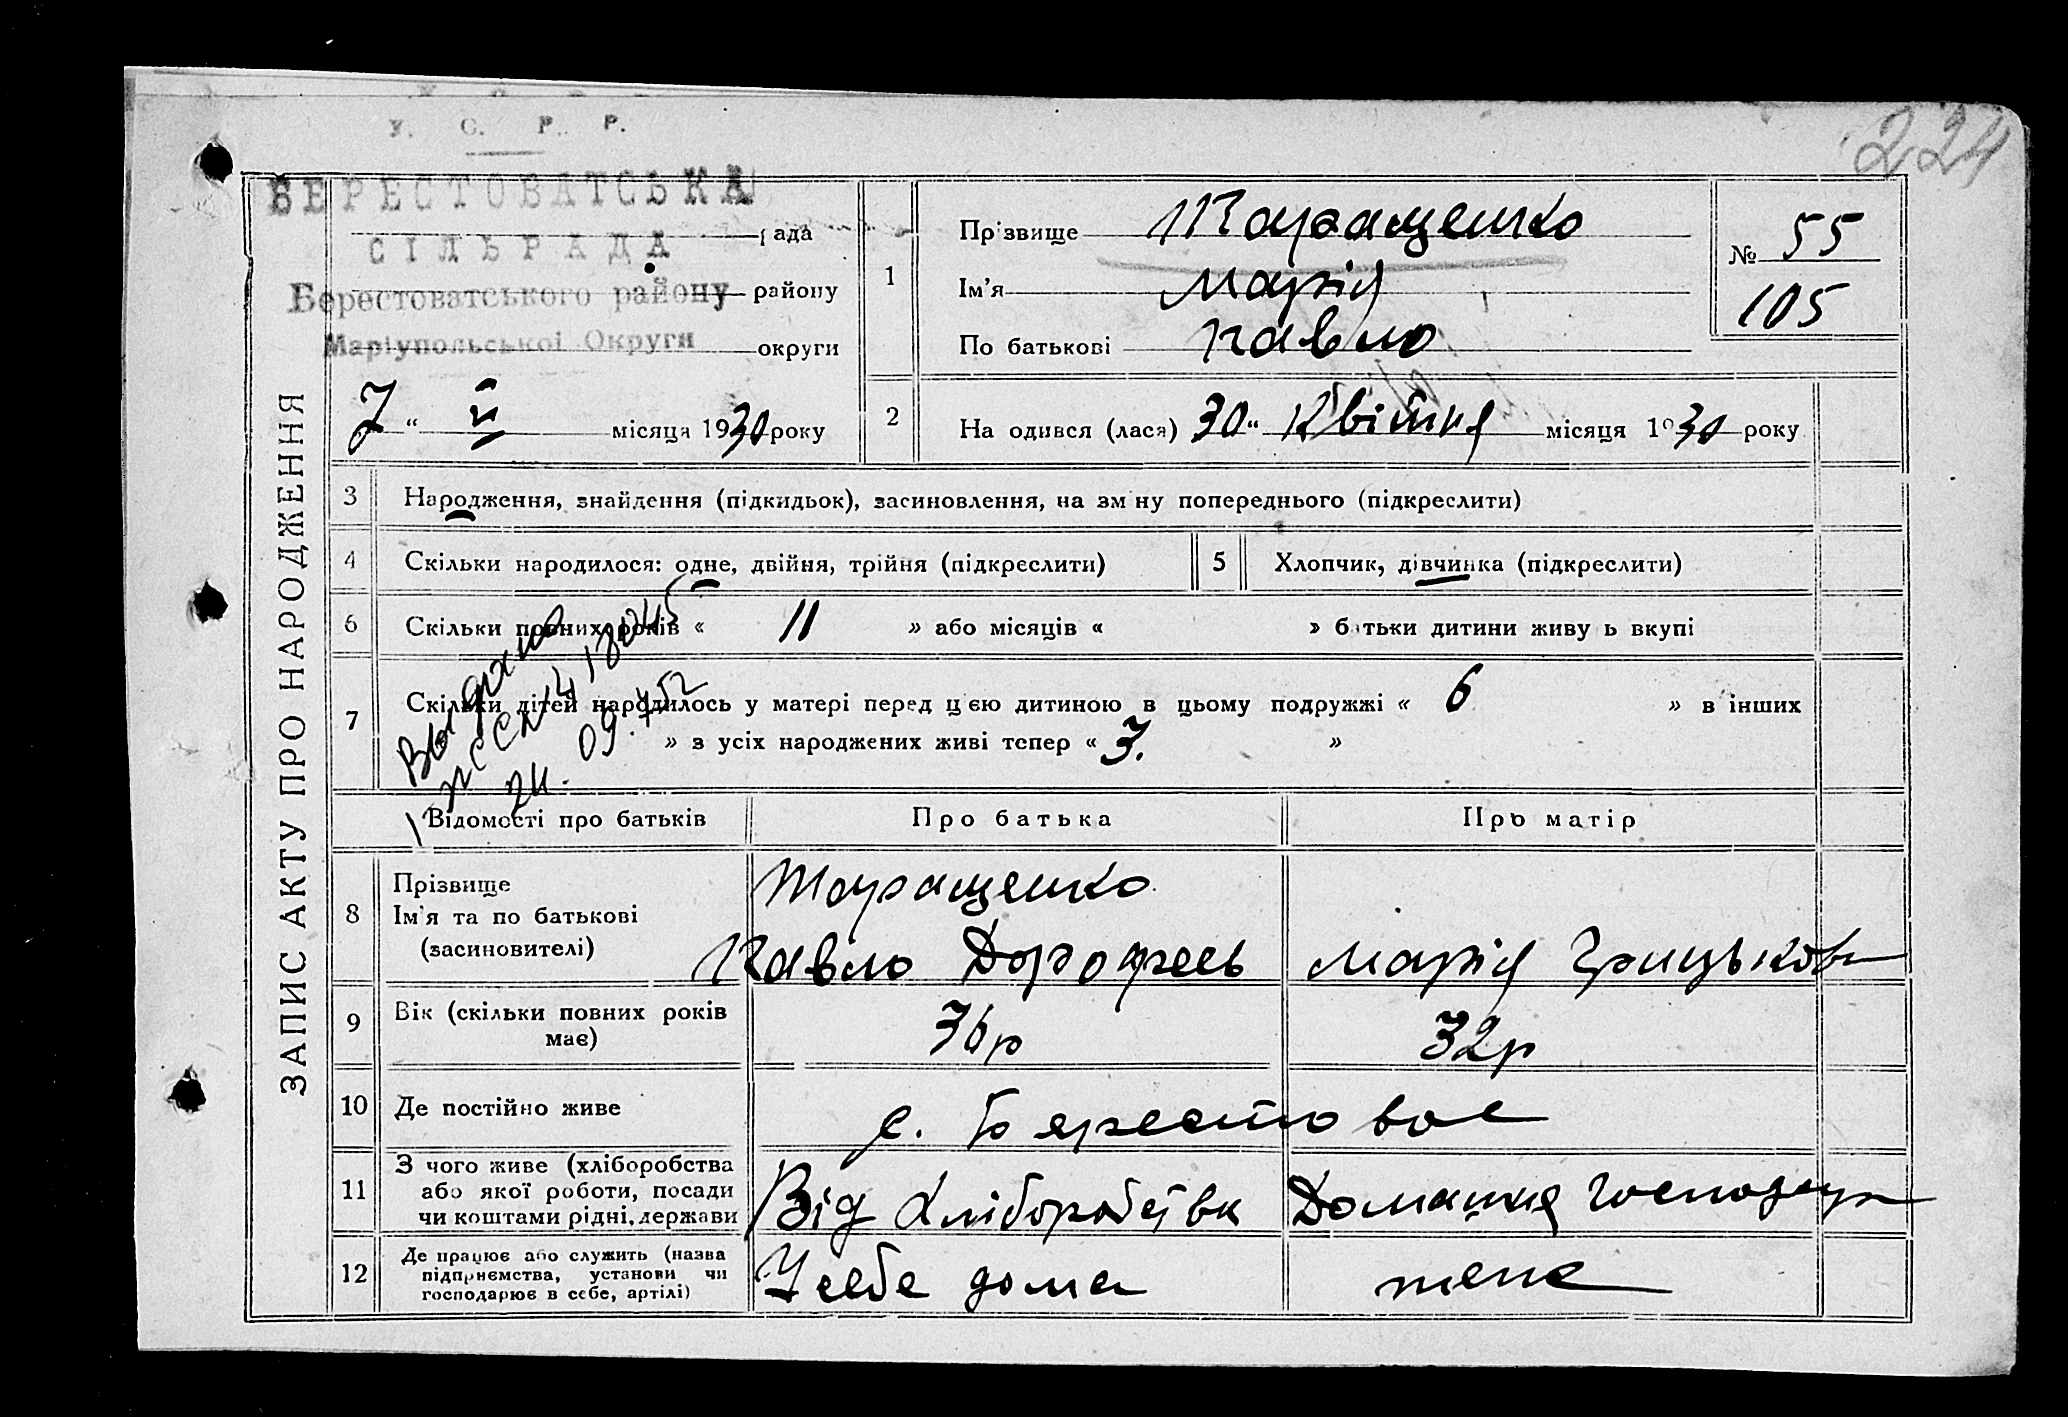 224
У. С. Р. Р.
БЕРЕСТОВАТСЬКА
рада
СІЛЬРАДА
Берестоватського району району
Маріупольської Округи округи
7 " V місяця 1930 року
ЗАПИС АКТУ ПРО НАРОДЖЕННЯ
1 Прізвище Таращенко
Ім'я Марія
По батькові Павло
№ 55
105
2 На одився (лася) 30 " Квітня місяця 1930 року
3 Народження, знайдення (підкидьок), засиновлення, на зм ну попереднього (підкреслити)
4 Скільки народилося: одне, двійня, трійня (підкреслити) 5 Хлопчик, дівчинка (підкреслити)
6 Скільки повних років « 11 » або місяців « » б тьки дитини живу ь вкупі
7 Скільки дітей народилось у матері перед цією дитиною в цьому подружжі « 6 » в інших
» з усіх народжених живі тепер « 3. »
Выдано
24. 09. 52
Відомості про батьків Про батька Про матір
8 Прізвище
Ім'я та по батькові
(засиновителі)
Таращенко
Павло Дорофеєв Марія Грицькова
9 Вік (скільки повних років
має)
36р 32р
10 Де постійно живе с. Бярестовое
11 З чого живе (хліборобства
або якої роботи, посади
чи коштами рідні, держави
Від Хліборобства Домашня господар
12 Де працює або служить (назва
підприємства, установи чи
господарює в себе, артілі)
У себе дома теже